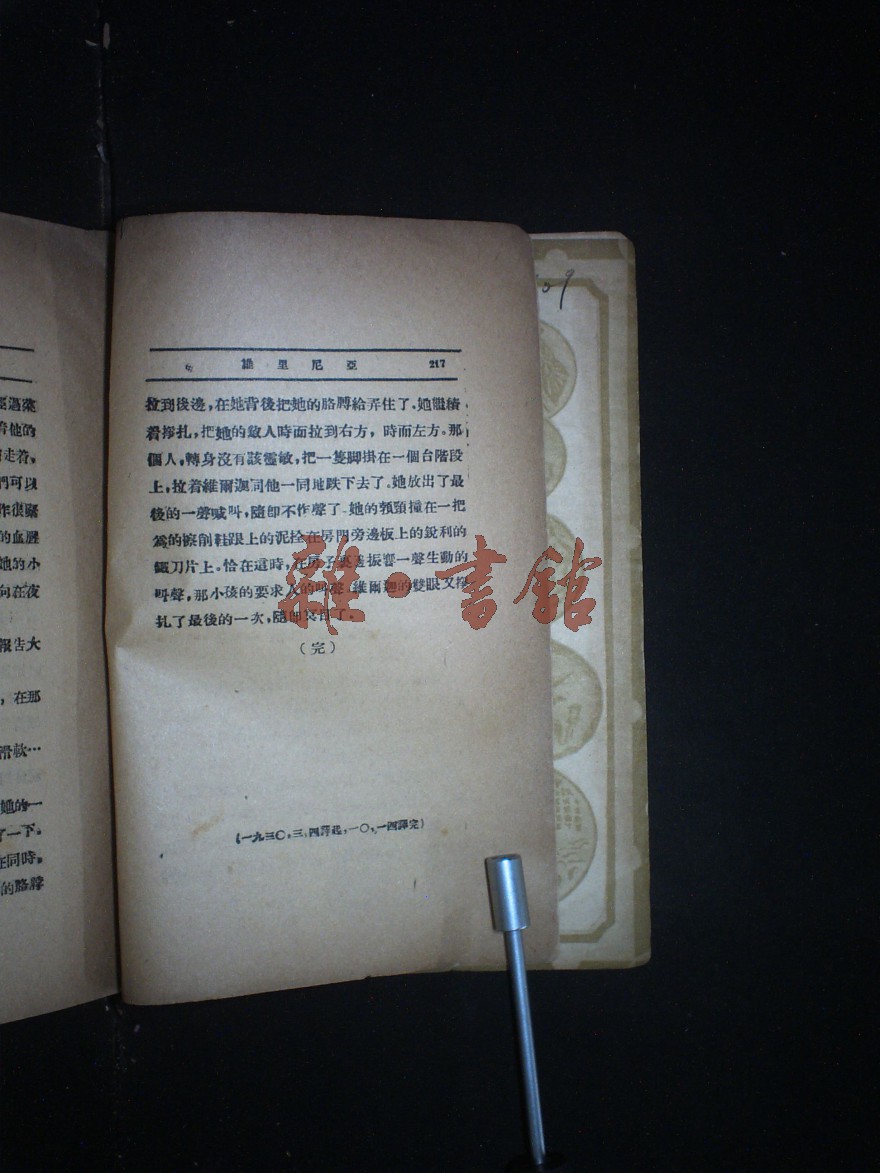 維里尼亞 217
拉到後邊，在她背後把她的胳膊給弄住了。她繼續
着掙扎，把她的敵人時而拉到右方，時而左方。那
個人，轉身沒有該靈敏，把一隻脚掛在一個台階段
上，拉着維爾迦同他一同地跌下去了。她放出了最
後的一聲喊叫，隨卽不作聲了。她的頸撞在一把
爲的擦削鞋跟上的泥拴在房門旁邊板上的銳利的
刀片上。恰在這時，在房子裏振響一聲生動的
呌聲，那小孩的要求人的呌聲。維爾迦的雙眼又掙
扎了最後的一次，隨卽了。
（完）
（一九三〇，三，四譯起，一〇，一四譯完）
着他的
走着，
們可以
的血
她的小
向在夜
報告大
，在那
滑軟…
她的一
了一下。
在同時，
的胳膊
09
雜·書館